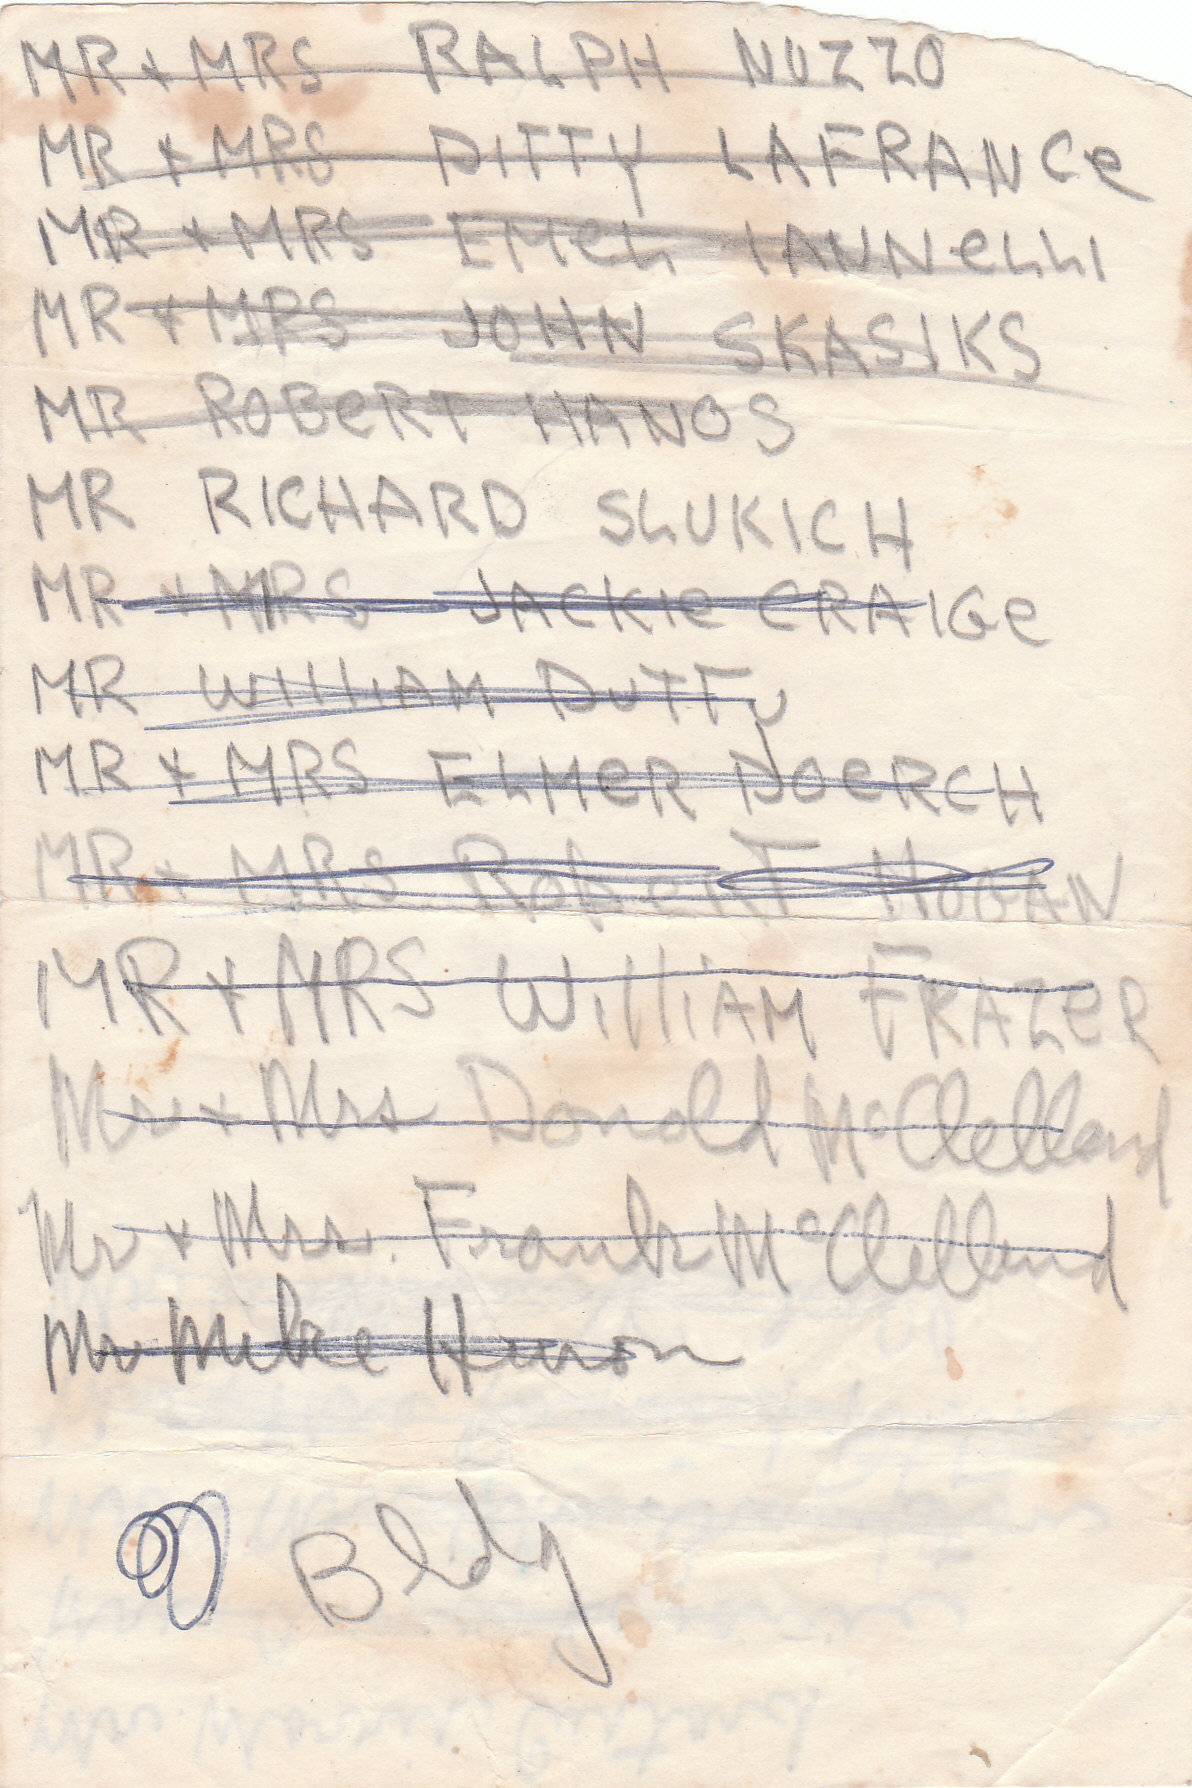 MR + MRS RALPH NUZZO
MR + MRS DITTY LAFRANCe
MR + MRS EMeL IANNeLLI
MR + MRS JOHN SKASIKS
MR ROBeRT HANOS
MR RICHARD SLUKICH
MR + MRS JACKIe CRAIGe
MR WIllIAM DuTTy
MR + MRS ELMeR DOeRCH
MR + MRS RobeRT HOGAN
MR + MRS WIllIAM FRAZeR
Mr + Mrs Donald McClelland
Mr + Mrs. Frank McClelland
Mr Mike Huron
Bldg